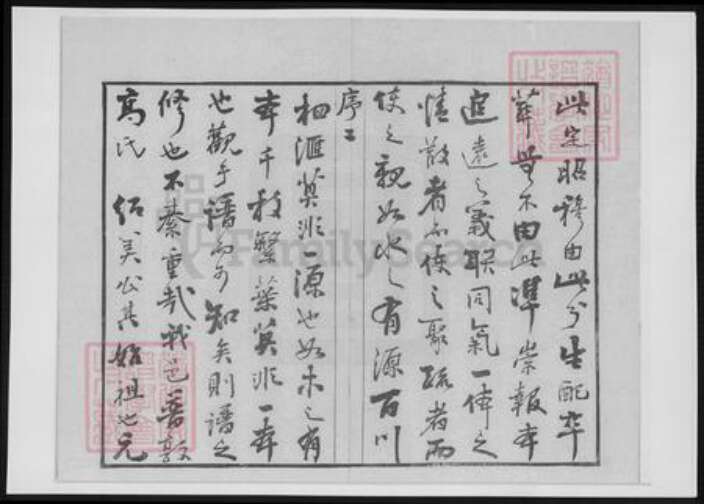 此定昭穆由此分生配卒
葬莫不由此準崇報本
追遠之義联同氣一体之
情散者而使之聚疏者而
使之親如水之有源百川
序二
相滙莫非一源也如木之有
本千枝繁葉莫非一本
也觀乎譜而可知矣則譜之
修也不綦重哉我邑晉敦
高氏 紹美公其始祖也元
FamilySearch